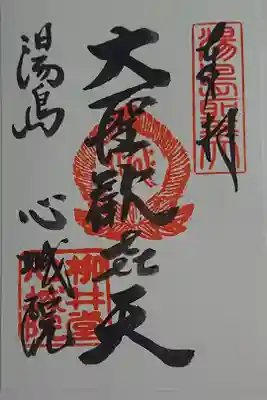 奉拝
大聖歓喜天
湯島 心城院
柳井堂
心城院